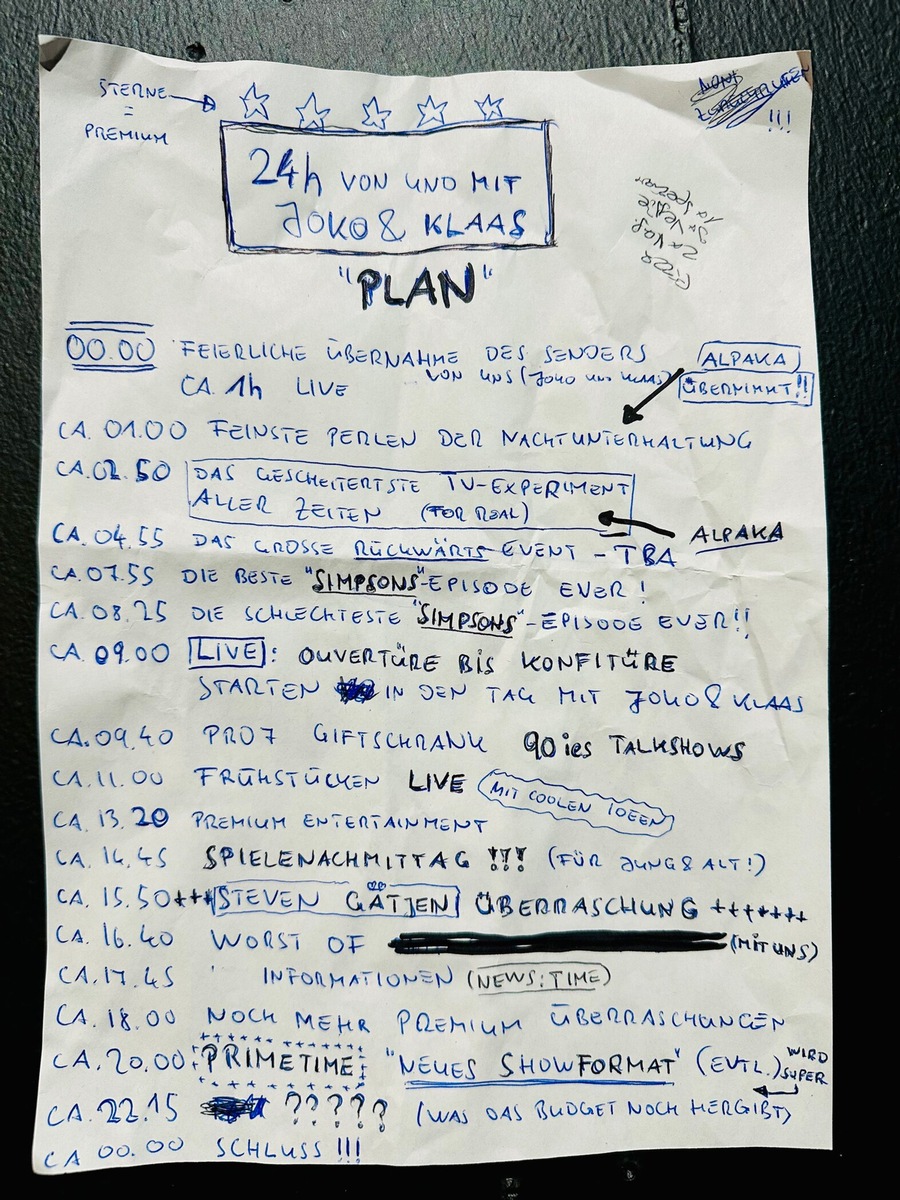 STERNE
=
PREMIUM
!!!
24h VON UND MIT
JOKO & KLAAS
"PLAN"
PIZZA
2x
00.00 FEIERLICHE ÜBERNAHME DES SENDERS
VON UNS (JOKO UND KLAAS)
CA. 1h LIVE
ALPAKA
ÜBERNIMMT!!
CA. 01.00 FEINSTE PERLEN DER NACHTUNTERHALTUNG
CA. 02.50 DAS GESCHEITERTSTE TV-EXPERIMENT
ALLER ZEITEN (FOR REAL)
ALPAKA
CA. 04.55 DAS GROSSE RÜCKWÄRTS EVENT - TBA
CA. 07.55 DIE BESTE "SIMPSONS"-EPISODE EVER!
CA. 08.25 DIE SCHLECHTESTE "SIMPSONS"-EPISODE EVER!!
CA. 09.00 LIVE: OUVERTÜRE BIS KONFITÜRE
STARTEN IN DEN TAG MIT JOKO & KLAAS
CA. 09.40 PRO7 GIFTSCHRANK 90ies TALKSHOWS
CA. 11.00 FRÜHSTÜCKEN LIVE MIT COOLEN IDEEN
CA. 13.20 PREMIUM ENTERTAINMENT
CA. 14.45 SPIELENACHMITTAG !!! (FÜR JUNG & ALT!)
CA. 15.50 +++ STEVEN GÄTJEN ÜBERRASCHUNG +++++++
CA. 16.40 WORST OF (MIT UNS)
CA. 17.45 INFORMATIONEN (NEWS:TIME)
CA. 18.00 NOCH MEHR PREMIUM ÜBERRASCHUNGEN
CA. 20.00 PRIMETIME "NEUES SHOWFORMAT" (EVTL.) WIRD
SUPER
CA. 22.15 ????? (WAS DAS BUDGET NOCH HERGIBT)
CA 00.00 SCHLUSS!!!